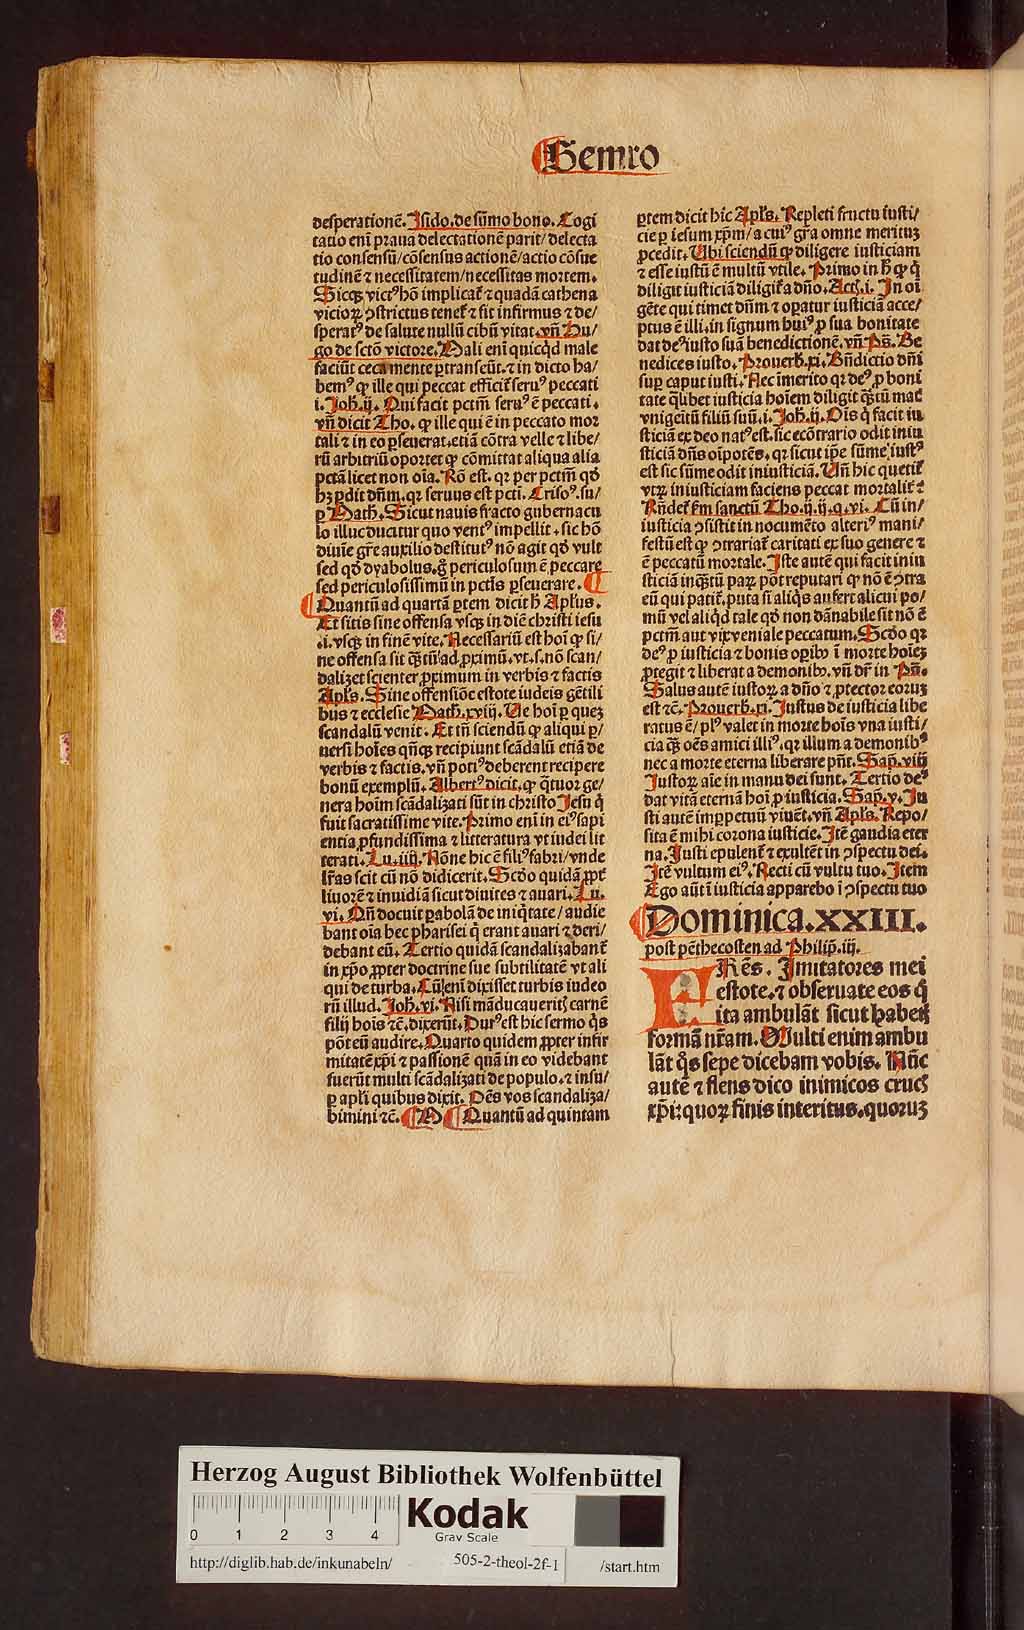 Sermo
desperationē. Isido. de sūmo bono. Cogi
tatio enī praua delectationē parit/ delecta
tio consensū/ cōsensus actionē/ actio cōsue
tudinē ⁊ necessitatem/ necessitas mortem.
Sicqꝫ vict⁹ hō implicat᷑ ⁊ quadā cathena
vicioꝝ ꝯstrictus tenet᷑ ⁊ sit infirmus ⁊ de/
sperat⁹ de salute nullū cibū vitat. vn̄ Hu/
go de sctō victore. Mali enī quicq̇d male
faciūt ceca mente ꝑtranseūt. ⁊ in dicto ha/
bem⁹ ꝙ ille qui peccat efficit᷑ seru⁹ peccati
i. Joh̄. ij. Qui facit pctm̄ seru⁹ ē peccati.
vn̄ dicit Tho. ꝙ ille qui ē in peccato mor
tali ⁊ in eo ꝑseuerat. etiā cōtra velle ⁊ libe/
rū arbitriū oportet ꝙ cōmittat aliqua alia
pctā licet non oīa. Rō est. qꝛ per pctm̄ qđ
hꝫ ꝑdit dn̄m. qꝛ seruus est pcti. Criso⁹. su/
ꝑ Math̄. Sicut nauis fracto gubernacu
lo illuc ducitur quo vent⁹ impellit. sic hō
diuīe gr̄e auxilio destitut⁹ nō agit qđ vult
sed qđ dyabolus. g̊ periculosum ē peccare
sed periculosissimū in pctīs ꝑseuerare.
Quantū ad quartā ꝑtem dicit h̄ Apl̄us.
Et sitis sine offensa vsqꝫ in diē christi iesu
.i. vsqꝫ in finē vite. Necessariū est hoī ꝙ si/
ne offensa sit q̄ꝫtū ad ꝓximū. vt .s. nō scan/
dalizet scienter ꝓximum in verbis ⁊ factis
Apl̄s. Sine offensiōe estote iudeis gētili
bus ⁊ ecclesie Math̄. xviij. Ue hoī ꝑ queꝫ
scandalū venit. Et tn̄ sciendū ꝙ aliqui ꝑ/
uersi hoīes qn̄qꝫ recipiunt scādalū etiā de
verbis ⁊ factis. vn̄ poti⁹ deberent recipere
bonū exemplū. Albert⁹ dicit. ꝙ q̄tuor ge/
nera hoīm scādalizati sūt in christo Jesu q̇
fuit sacratissime vite. Primo enī in ei⁹ sapi
entia ꝓfundissima ⁊ litteratura vt iudei lit
terati. Lu. iiij. Nōne hic ē fili⁹ fabri/ vnde
lr̄as scit cū nō didicerit. Scđo quidā ꝓpt᷑
liuorē ⁊ inuidiā sicut diuites ⁊ auari. Lu.
vi. Qn̄ docuit ꝑabolā de iniq̇tate/ audie
bant oīa hec pharisei q̇ erant auari ⁊ deri/
debant eū. Tertio quidā scandalizabant᷑
in xp̄o ꝓpter doctrine sue subtilitatē vt ali
qui de turba. Cū enī dixisset turbis iudeo
rū illud. Joh̄. vi. Nisi māducaueritꝭ carnē
filij hoīs ⁊c̄. dixerūt. Dur⁹ est hic sermo q̇s
pōt eū audire. Quarto quidem ꝓpter infir
mitatē xp̄i ⁊ passionē quā in eo videbant
fuerūt multi scādalizati de populo. ⁊ insu/
ꝑ apl̄i quibus dixit. Oēs vos scandaliza/
bimini ⁊c̄. Quantū ad quintam
ꝑtem dicit hic Apl̄s. Repleti fructu iusti/
cie ꝑ iesum xp̄m/ a cui⁹ gr̄a omne merituꝫ
ꝓcedit. Ubi sciendū ꝙ diligere iusticiam
⁊ esse iustū ē multū vtile. Primo in h̄ ꝙ q̇
diligit iusticiā diligit᷑ a dn̄o. Act. i. In oī
gēte qui timet dn̄m ⁊ oꝑatur iusticiā acce/
ptus ē illi. in signum hui⁹ ꝓ sua bonitate
dat de⁹ iusto suā benedictionē. vn̄ Ps̄. Be
nedices iusto. Prouerb̄. xi. Bn̄dictio dn̄i
suꝑ caput iusti. Nec īmerito qꝛ de⁹ ꝓ boni
tate q̄libet iusticia hoīem diligit q̄ꝫtū mac̄
vnigeitū filiū suū. i. Joh̄. ij. Ois q̇ facit iu
sticiā ex deo nat⁹ est. sic ecōtrario odit iniu
sticiā dn̄s oīpotēs. qꝛ sicut ip̄e sūme iust⁹
est sic sūme odit iniusticiā. Un̄ hic querit᷑
vtꝝ iniusticiam faciens peccat mortalit᷑:
Rn̄det᷑ fm sanctū Tho. ij. ij. q. vi. Cū in/
iusticia ꝯsistit in nocumēto alteri⁹ mani/
festū est ꝙ ꝯtrariat᷑ caritati ex suo genere ⁊
ē peccatū mortale. Iste autē qui facit iniu
sticiā inq̄ꝫtū paꝝ pōt reputari ꝙ nō ē ꝯtra
eū qui patit᷑. puta si aliq̇s aufert alicui po/
mū vel aliq̇d tale qđ non dānabile sit nō ē
pctm̄ aut vix veniale peccatum. Scđo qꝛ
de⁹ ꝓ iusticia ⁊ bonis oꝑibꝰ ī morte hoīeꝫ
ꝓtegit ⁊ liberat a demonibꝰ. vn̄ dr̄ in Ps̄.
Salus autē iustoꝝ a dn̄o ⁊ ꝓtector eoruꝫ
est ⁊c̄. Prouerb̄. xi. Justus de iusticia libe
ratus ē/ pl⁹ valet in morte hoīs vna iusti/
cia q̄ꝫ oēs amici illi⁹. qꝛ illum a demonib⁹
nec a morte eterna liberare pn̄t. Sap̄. viij
Justoꝝ aīe in manu dei sunt. Tertio de⁹
dat vitā eternā hoī ꝓ iusticia. Sap̄. v. Ju
sti autē imꝑpetuū viuēt. vn̄ Apl̄s. Repo/
sita ē mihi corona iusticie. Itē gaudia eter
na. Justi epulent᷑ ⁊ exultēt in ꝯspectu dei.
Itē vultum ei⁹. Recti cū vultu tuo. Item
Ego aūt ī iusticia apparebo ī ꝯspectu tuo
Dominica.XXIII.
post pēthecosten ad Philip̄. iij.
FRēs. Imitatores mei
estote. ⁊ obseruate eos q̇
ita ambulāt sicut habetꝭ
formā nr̄am. Multi enim ambu
lāt q̇s sepe dicebam vobis. Nūc
autē ⁊ flens dico inimicos crucꝭ
xp̄i: quoꝝ finis interitus. quoruꝫ
Herzog August Bibliothek Wolfenbüttel
0 1 2 3 4
Kodak
Gray Scale
http://diglib.hab.de/inkunabeln/ 505-2-theol-2f-1 /start.htm